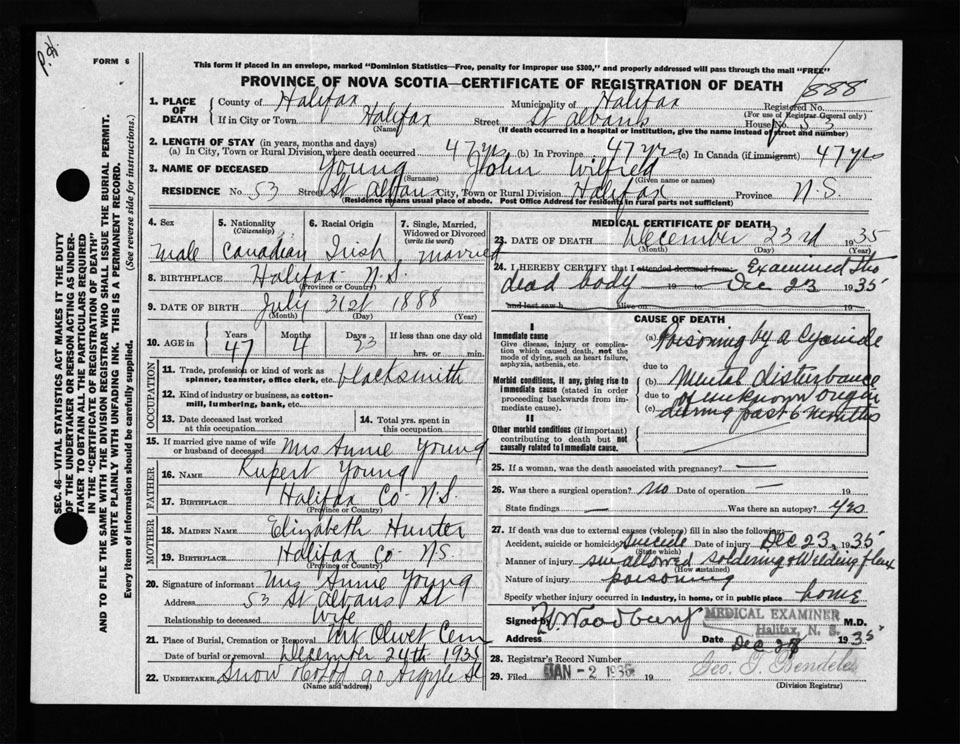 P.H.
FORM 6
This form if placed in an envelope, marked "Dominion Statistics—Free, penalty for improper use $300," and properly addressed will pass through the mail "FREE"
PROVINCE OF NOVA SCOTIA—CERTIFICATE OF REGISTRATION OF DEATH
888
SEC. 46—VITAL STATISTICS ACT MAKES IT THE DUTY
OF THE UNDERTAKER OR PERSON ACTING AS UNDER-
TAKER TO OBTAIN ALL THE PARTICULARS REQUIRED
IN THE "CERTIFICATE OF REGISTRATION OF DEATH"
AND TO FILE THE SAME WITH THE DIVISION REGISTRAR WHO SHALL ISSUE THE BURIAL PERMIT.
WRITE PLAINLY WITH UNFADING INK. THIS IS A PERMANENT RECORD.
Every item of information should be carefully supplied. (See reverse side for instructions.)
1. PLACE OF DEATH County of Halifax Municipality of Halifax Registered No.
(For use of Registrar General only)
If in City or Town Halifax Street St Albans House No. 53
(Name) (If death occurred in a hospital or institution, give the name instead of street and number)
2. LENGTH OF STAY (in years, months and days)
(a) In City, Town or Rural Division where death occurred 47 yrs (b) In Province 47 yrs (c) In Canada (if immigrant) 47 yrs
3. NAME OF DECEASED Young John Wilfred
(Surname) (Given name or names)
RESIDENCE No. 53 Street St Albans City, Town or Rural Division Halifax Province N.S.
(Residence means usual place of abode. Post Office Address for residents in rural parts not sufficient)
4. Sex 5. Nationality (Citizenship) 6. Racial Origin 7. Single, Married, Widowed or Divorced (write the word)
Male Canadian Irish Married
8. BIRTHPLACE Halifax N.S.
(Province or Country)
9. DATE OF BIRTH July 31st 1888
(Month) (Day) (Year)
10. AGE in Years Months Days If less than one day old
47 4 23 hrs. or min.
OCCUPATION
11. Trade, profession or kind of work as
spinner, teamster, office clerk, etc. blacksmith
12. Kind of industry or business, as cotton-
mill, lumbering, bank, etc.
13. Date deceased last worked at this occupation 14. Total yrs. spent in this occupation
15. If married give name of wife
or husband of deceased Mrs Annie Young
FATHER
16. NAME Rupert Young
17. BIRTHPLACE Halifax Co- N.S.
(Province or Country)
MOTHER
18. MAIDEN NAME Elizabeth Hunter
19. BIRTHPLACE Halifax Co- N.S.
(Province or Country)
20. Signature of informant Mrs Annie Young
Address 53 St Albans St
Relationship to deceased Wife
21. Place of Burial, Cremation or Removal Mt Olivet Cem
Date of burial or removal December 24th 1935
22. UNDERTAKER Snow & Co Ltd 90 Argyle St
(Name and address)
MEDICAL CERTIFICATE OF DEATH
23. DATE OF DEATH December 23rd 1935
(Month) (Day) (Year)
24. I HEREBY CERTIFY that I attended deceased from: Examined this
dead body 19 to Dec 23 1935
and last saw h alive on
CAUSE OF DEATH
I
Immediate cause
Give disease, injury or complication which caused death, not the mode of dying, such as heart failure, asphyxia, asthenia, etc.
(a) Poisoning by a Cyanide
due to
Morbid conditions, if any, giving rise to immediate cause (stated in order proceeding backwards from immediate cause).
(b) Mental disturbance
due to of unknown origin
(c) during past 6 months
II
Other morbid conditions (if important) contributing to death but not causally related to immediate cause.
25. If a woman, was the death associated with pregnancy? —
26. Was there a surgical operation? No Date of operation — 19
State findings — Was there an autopsy? Yes
27. If death was due to external causes (violence) fill in also the following:
Accident, suicide or homicide? Suicide Date of injury Dec 23, 1935
(State which)
Manner of injury swallowed soldering & Welding flux
(How sustained)
Nature of injury poisoning
Specify whether injury occurred in industry, in home, or in public place home
Signed by H. Woodbury MEDICAL EXAMINER M.D.
Halifax, N. S.
Address Date Dec 1935
28. Registrar's Record Number
29. Filed JAN -2 1936 19
(Division Registrar)